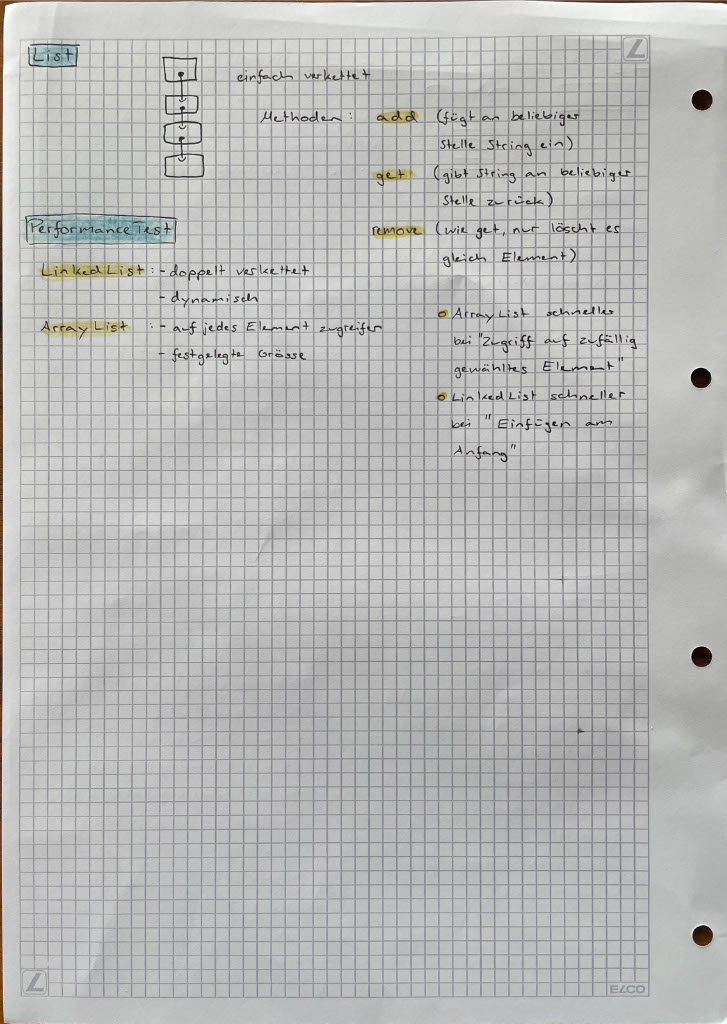 List
einfach verkettet
Methoden: add (fügt an beliebiger
Stelle String ein)
get (gibt String an beliebiger
Stelle zurück)
remove (wie get, nur löscht es
gleich Element)
Performance Test
Linked List: - doppelt verkettet
- dynamisch
Array List : - auf jedes Element zugreifen
- festgelegte Grösse
Array List schneller
bei "Zugriff auf zufällig
gewähltes Element"
Linked List schneller
bei "Einfügen am
Anfang"
ELCO